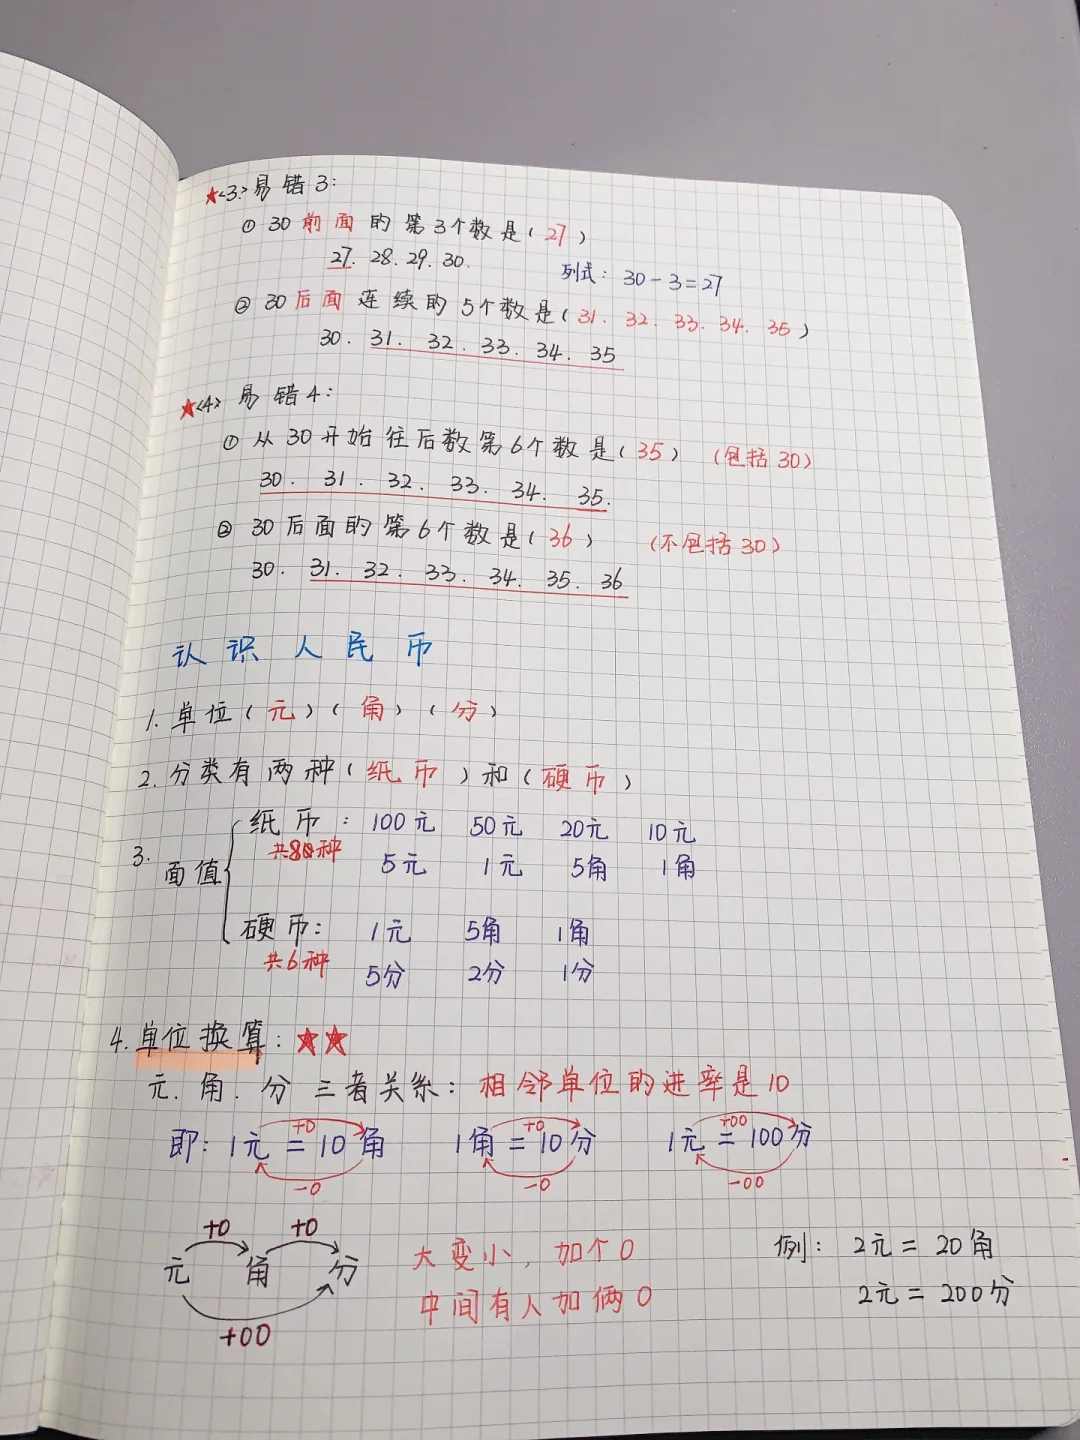 ★<3>易错3:
① 30前面的第3个数是(27)
27. 28. 29. 30.
列式: 30-3=27
② 30后面连续的5个数是(31. 32. 33. 34. 35)
30. 31. 32. 33. 34. 35
★<4>易错4:
① 从30开始往后数第6个数是(35) (包括30)
30. 31. 32. 33. 34. 35.
② 30后面的第6个数是(36) (不包括30)
30. 31. 32. 33. 34. 35. 36
认识人民币
1. 单位(元)(角)(分)
2. 分类有两种(纸币)和(硬币)
3. 面值
纸币: 100元 50元 20元 10元
共8种
5元 1元 5角 1角
硬币: 1元 5角 1角
共6种
5分 2分 1分
4. 单位换算: ★★
元. 角. 分三者关系: 相邻单位的进率是10
+0 +0 +00
即: 1元=10角 1角=10分 1元=100分
-0 -0 -00
+0 +0
元 角 分
+00
大变小, 加个0
中间有人加俩0
例: 2元=20角
2元=200分